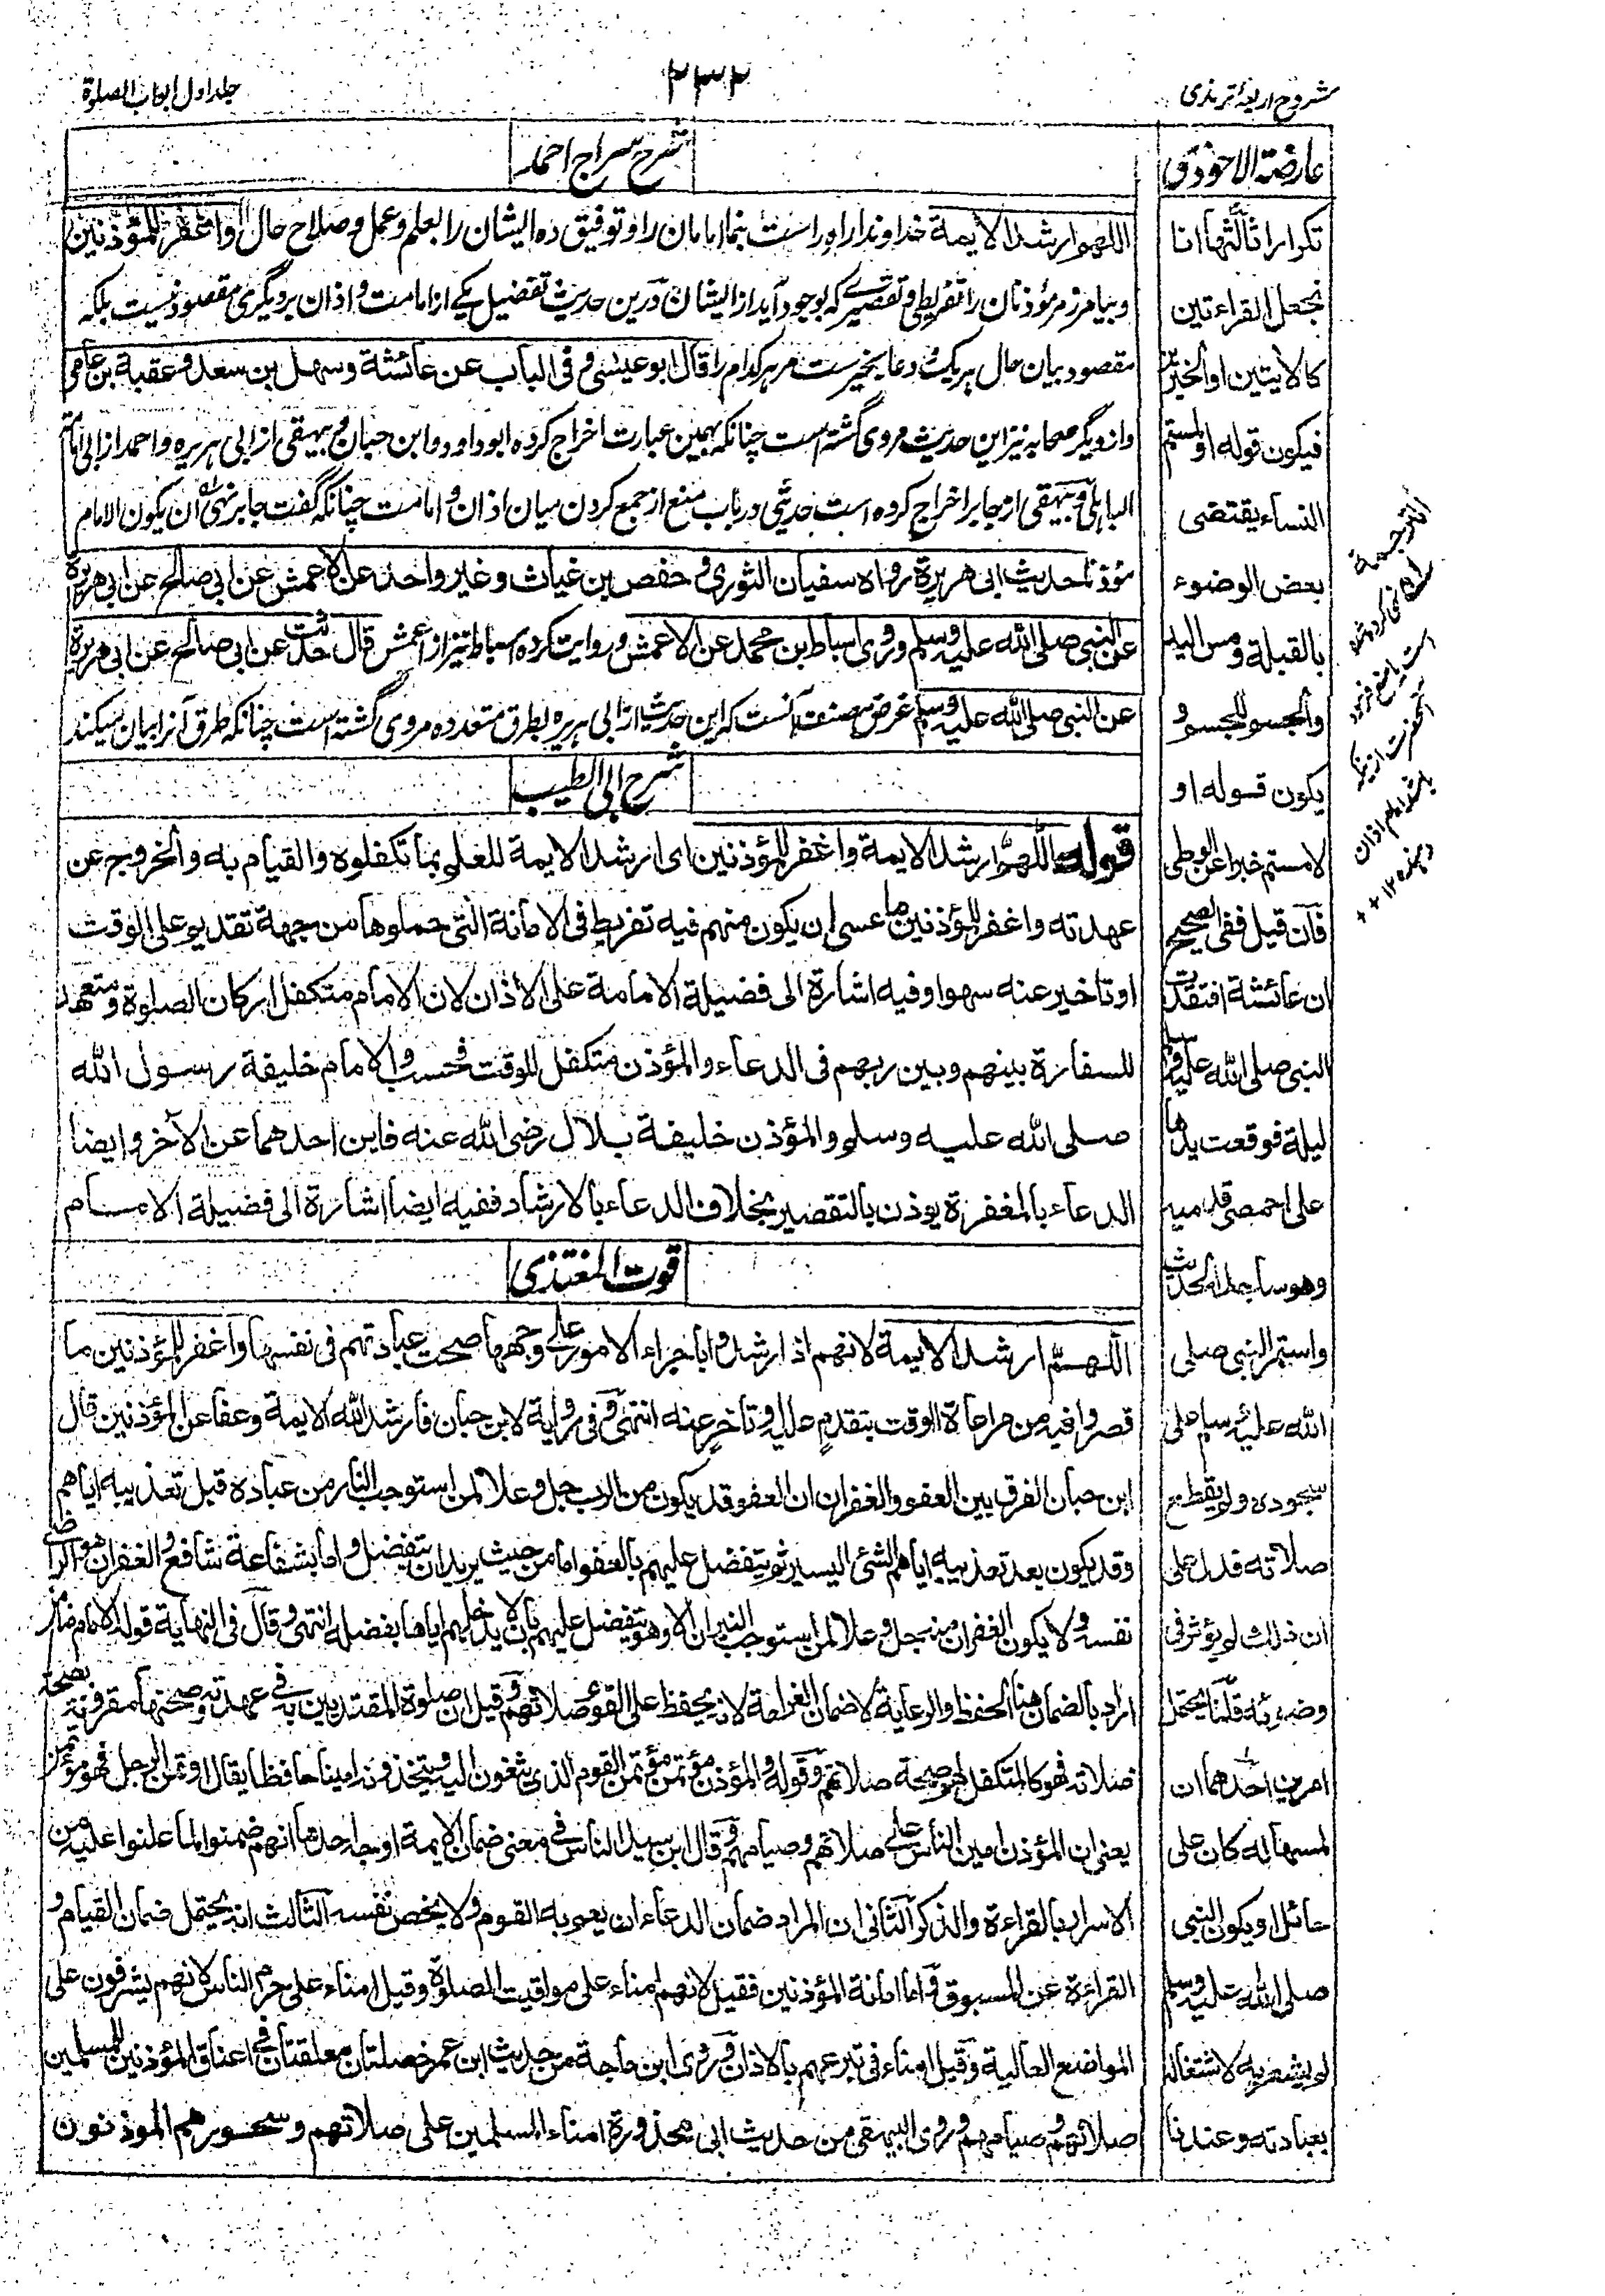 مشروح اربعۀ ترمذی
۲۳۲
جلد اول ابواب الصلوة
عارضة الاحوذی
تکرارا ثالثها انا
نجعل القراءتین
کالایتین او الخبرین
فیکون قوله او لمستم
النساء یقتضی
بعض الوضوء
بالقبلة ومس الید
والجس للجس و
یکون قوله او
لامستم خبرا عن الوطی
فان قیل ففی الصحیح
ان عائشة افتقدت
النبی صلی الله علیه وسلم
لیلة فوقعت یدها
علی اخمصی قدمیه
وهو ساجد الحدیث
واستمر النبی صلی
الله علیه وسلم علی
سجوده ولم یقطع
صلاته فدل علی
ان ذلك لم یؤثر فی
وضوئه قلنا یحتمل
امرین احدهما ان
لمسها له کان علی
حائل او یکون النبی
صلی الله علیه وسلم
لم یشعر به لاشتغاله
بعبادته وعندنا
شرح سراج احمد
اللهم ارشد الایمة خداوندا راه راست بنما امامان را و توفیق ده ایشان را بعلم و عمل و صلاح حال واغفر للمؤذنین
و بیامرز مر مؤذنان را تفریطی و تقصیرے که بوجود آید از ایشان درین حدیث تفضیل یکے از امامت و اذان بر دیگری مقصود نیست بلکه
مقصود بیان حال هریک و دعا بخیرست مر هرکدام را قال ابو عیسی و فی الباب عن عائشة وسهل بن سعد وعقبة بن عامر
و از دیگر صحابه نیز این حدیث مروی گشته است چنانکه بهمین عبارت اخراج کرده ابو داود و ابن حبان و بیهقی از ابی هریره و احمد از ابی امامة
الباهلی و بیهقی از جابر اخراج کرده است حدیثی در باب منع از جمع کردن میان اذان و امامت چنانکه گفت جابر نهی ان یکون الامام
مؤذنا حدیث ابی هریرة رواه سفیان الثوری و حفص بن غیاث وغیر واحد عن الاعمش عن ابی صالح عن ابی هریرة
عن النبی صلی الله علیه وسلم وروی اسباط بن محمد عن الاعمش و روایت کرده اسباط نیز از اعمش قال حدثت عن ابی صالح عن ابی هریرة
عن النبی صلی الله علیه وسلم غرض مصنف آنست که این حدیث از ابی هریره بطرق متعدده مروی گشته است چنانکه طرق آنرا بیان میکند
شرح ابی الطیب
قوله اللهم ارشد الایمة واغفر للمؤذنین ای ارشد الایمة للعلم بما تکفلوه والقیام به والخروج عن
عهدته واغفر للمؤذنین ما عسی ان یکون منهم فیه تفریط فی الامانة التی حملوها من جهة تقدیم علی الوقت
او تاخیر عنه سهوا وفیه اشارة الی فضیلة الامامة علی الاذان لان الامام متکفل ارکان الصلوة ومتعهد
للسفارة بینهم وبین ربهم فی الدعاء والمؤذن متکفل للوقت فحسب والامام خلیفة رسول الله
صلی الله علیه وسلم والمؤذن خلیفة بلال رضی الله عنه فاین احدهما عن الآخر وایضا
الدعاء بالمغفرة یوذن بالتقصیر بخلاف الدعاء بالارشاد ففیه ایضا اشارة الی فضیلة الامام
قوت المغتذی
اللهم ارشد الایمة لانهم اذا ارشدوا باجراء الامور علی وجهها صحت عبادتهم فی نفسها واغفر للمؤذنین ما
قصروا فیه من مراعاة الوقت بتقدم علیه وتاخر عنه انتهی وفی روایة لابن حبان فارشد الله الایمة وعفا عن المؤذنین قال
ابن حبان الفرق بین العفو والغفران ان العفو قد یکون من الرب جل وعلا لمن استوجب النار من عباده قبل تعذیبه ایاهم
وقد یکون بعد تعذیبه ایاهم الشئ الیسیر ثم یتفضل علیهم بالعفو اما من حیث یرید ان یتفضل واما بشفاعة شافع والغفران هو الرضی
نفسه ولا یکون الغفران منه جل وعلا لمن استوجب النیران الا وهو یتفضل علیهم بان لا یدخلهم ایاها بفضله انتهی وقال فی النهایة قوله الامام ضامن
اراد بالضمان هنا الحفظ والرعایة لا ضمان الغرامة لانه یحفظ علی القوم صلاتهم وقیل ان صلوة المقتدین به فی عهدته وصحتها مقرونة بصحة
صلاته فهو کالمتکفل لهم صحة صلاتهم وقوله والمؤذن مؤتمن مؤتمن القوم الذی یثقون الیه ویتخذونه امینا حافظا یقال اوتمن الرجل فهو مؤتمن
یعنی ان المؤذن امین الناس علی صلاتهم وصیامهم وقال ابن سید الناس فی معنی ضمان الایمة اوجه احدها انهم ضمنوا لما غلبوا علیه من
الاسرار بالقراءة والذکر الثانی ان المراد ضمان الدعاء ان یعم به القوم ولا یخص نفسه الثالث انه یحتمل ضمان القیام و
القراءة عن المسبوق واما امانة المؤذنین فقیل لانهم امناء علی مواقیت الصلوة وقیل امناء علی حرم الناس لانهم یشرفون علی
المواضع العالیة وقیل امناء فی تبرعهم بالاذان وروی ابن ماجة من حدیث ابن عمر خصلتان معلقتان فی اعناق المؤذنین للمسلمین
صلاتهم وصیامهم وروی البیهقی من حدیث ابی محذورة امناء المسلمین علی صلاتهم وسحورهم الموذنون